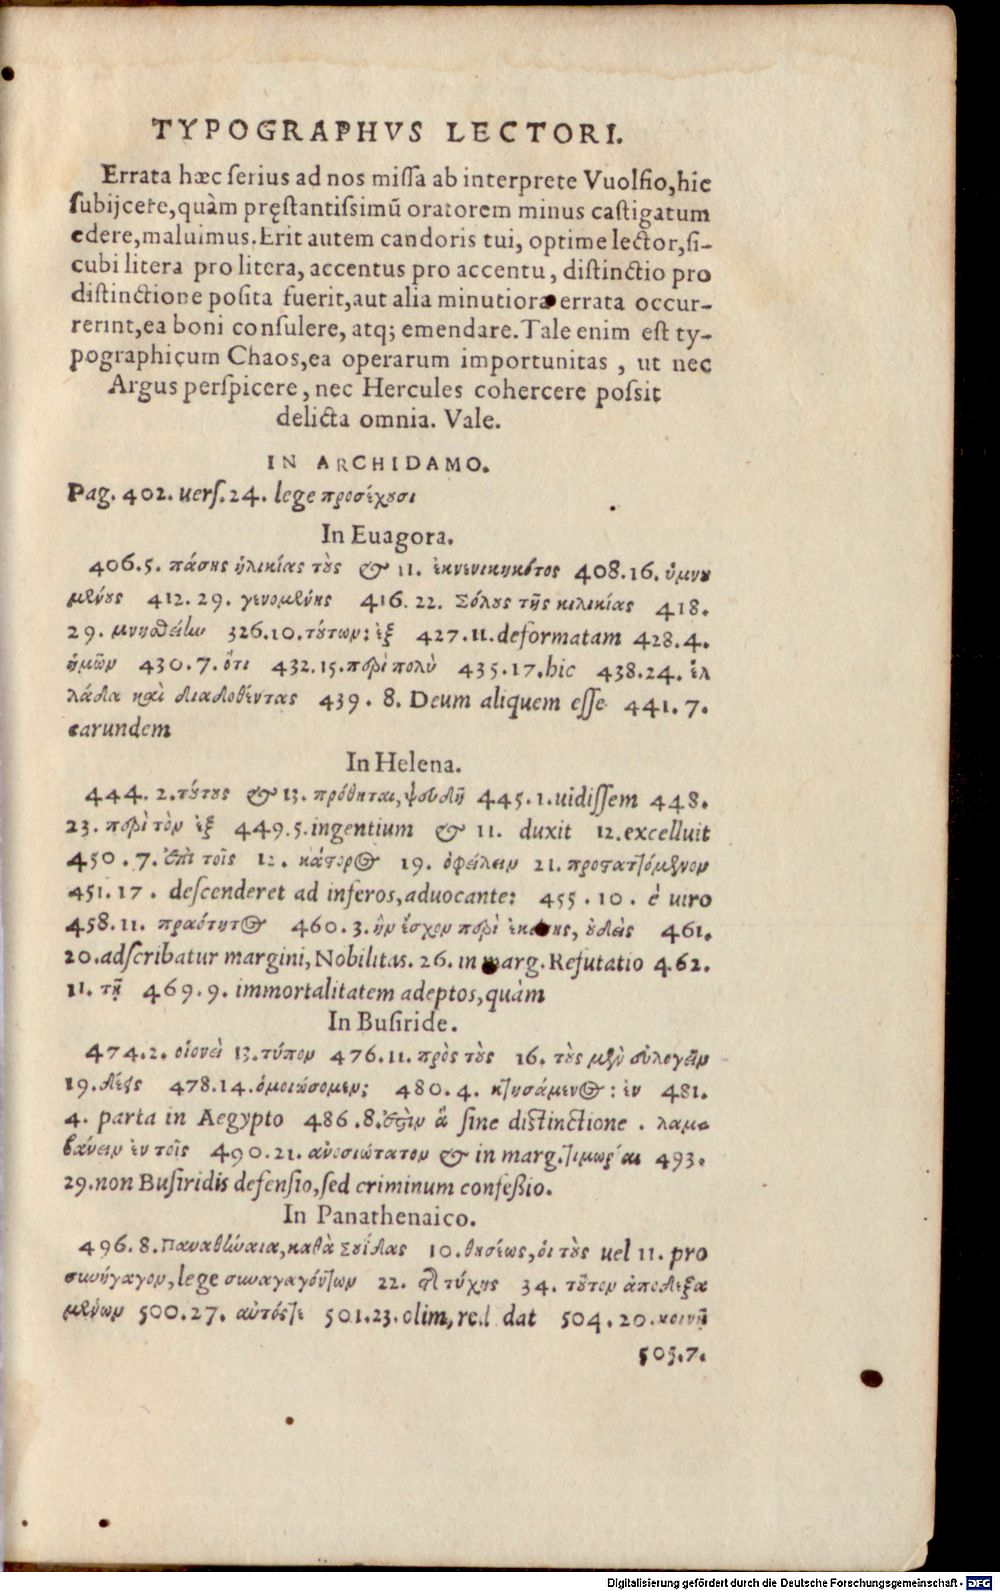 TYPOGRAPHVS LECTORI.
Errata hæc serius ad nos missa ab interprete Vuolfio, hic
subijcere, quàm pręstantissimũ oratorem minus castigatum
edere, maluimus. Erit autem candoris tui, optime lector, si-
cubi litera pro litera, accentus pro accentu, distinctio pro
distinctione posita fuerit, aut alia minutiora errata occur-
rerint, ea boni consulere, atq; emendare. Tale enim est ty-
pographicum Chaos, ea operarum importunitas, ut nec
Argus perspicere, nec Hercules cohercere possit
delicta omnia. Vale.
IN ARCHIDAMO.
Pag. 402. uers. 24. lege προσέχουσι
In Euagora.
406.5. πάσης ἡλικίας τοὺς & 11. ἐκνενικηκότος 408.16. ὑμνου
μένους 412.29. γενομένης 416.22. Σόλους τῆς κιλικίας 418.
29. μνησθείην 326.10. τούτων: ἐξ 427.11. deformatam 428.4.
ἡμῶν 430.7. ὅτι 432.15. περὶ πολὺ 435.17. hic 438.24. ἑλ
λάδα καὶ διαδοθέντας 439.8. Deum aliquem esse 441.7.
earundem
In Helena.
444.2. τούτους & 13. πρόθηται, ψευδῆ 445.1. uidissem 448.
23. περὶ τὸν ἐξ 449.5. ingentium & 11. duxit 12. excelluit
450.7. ἐπὶ τοῖς 12. κάτορος 19. ὀφείλειν 21. προταττόμενον
451.17. descenderet ad inferos, aduocante: 455.10. è uiro
458.11. πραότητος 460.3. ἣν ἔσχον περὶ οὐδεὶς 461.
20. adscribatur margini, Nobilitas. 26. in marg. Refutatio 462.
11. τῇ 469.9. immortalitatem adeptos, quàm
In Busiride.
474.2. οἱονεὶ 13. τύπον 476.11. πρὸς τοὺς 16. τοὺς μὲν εὐλογεῖν
19. λέξις 478.14. ὁμοιώσομεν; 480.4. κτησάμενος: ἐν 481.
4. parta in Aegypto 486.8. ἐστὶν ἃ sine distinctione. λαμ-
βάνειν ἐν τοῖς 490.21. ἀνοσιώτατον & in marg. τιμωρίαι 493.
29. non Busiridis defensio, sed criminum confeßio.
In Panathenaico.
496.8. Παναθήναια, καθὰ Σουίδας 10. θησέως, οἱ τοὺς uel 11. pro
συνήγαγον, lege συναγαγόντων 22. διὰ τύχης 34. τοῦτον ἀποδεξα
μένων 500.27. αὐτός τε 501.23. olim, red dat 504.20. κοινῇ
505.7.
Digitalisierung gefördert durch die Deutsche Forschungsgemeinschaft - DFG